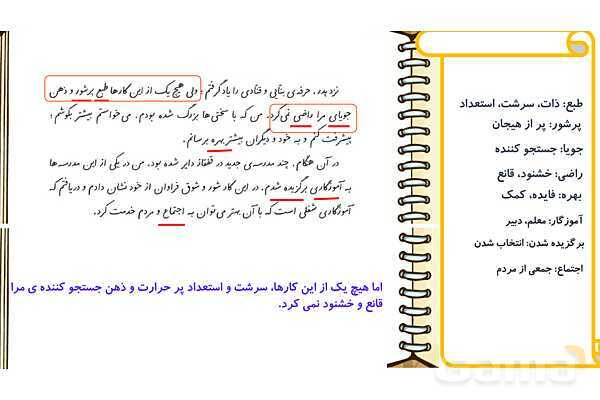 نزد پدر، حرفه‌ی بنّایی و قنّادی را یاد گرفتم؛ ولی هیچ یک از این کارها طبع پرشور و ذهن
جویای مرا راضی نمی‌کرد. من که با سختی‌ها بزرگ شده بودم، می‌خواستم بیشتر بکوشم؛
پیشرفت کنم و به خود و دیگران بیشتر بهره برسانم.
در آن هنگام، چند مدرسه‌ی جدید در قفقاز دایر شده بود. من در یکی از این مدرسه‌ها
به آموزگاری برگزیده شدم. در این کار شور و شوق فراوان از خود نشان دادم و دریافتم که
آموزگاری شغلی است که با آن بهتر می‌توان به اجتماع و مردم خدمت کرد.
اما هیچ یک از این کارها، سرشت و استعداد پر حرارت و ذهن جستجو کننده ی مرا
قانع و خشنود نمی کرد.
طبع: ذات، سرشت، استعداد
پرشور: پر از هیجان
جویا: جستجو کننده
راضی: خشنود، قانع
بهره: فایده، کمک
آموزگار: معلم، دبیر
برگزیده شدن: انتخاب شدن
اجتماع: جمعی از مردم
gama